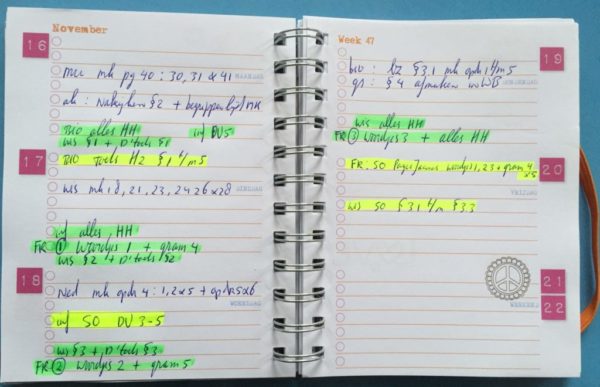 November
16
MAANDAG
mk pg 40 : 30, 31 & 41
ak : §2 + begrippenlijst mk
BIO alles HH
wis §1 + D'toets §1
17
BIO Toets H2 §1 t/m 5
wis mk 18, 21, 23, 24 26 & 28
DINSDAG
alles HH
FR ① woordjes 1 + gram 4
wis §2 + D'toets §2
18
Ned mk opdr 4 : 1, 2 & 5 + opdr 5 & 6
WOENSDAG
SO DU 3-5
wis §3 + D'toets §3
FR ② woordjes 2 + gram 5
Week 47
19
bio : §3.1 mk opdr 1 t/m 5
DONDERDAG
gs : §4 afmaken in WB
wis alles HH
FR ③ woordjes 3 + alles HH
20
FR : SO woordjes 1, 2 3 + gram 4 & 5
VRIJDAG
wis SO §3.1 t/m §3.3
21
22
WEEKEND